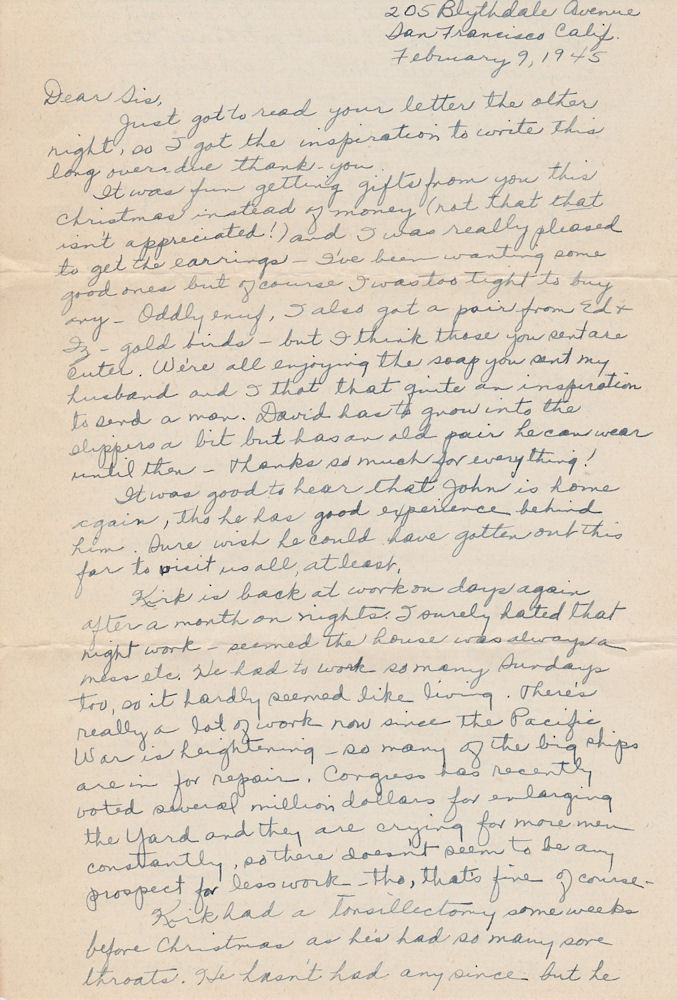 205 Blythdale Avenue
San Francisco Calif.
February 9, 1945
Dear Sis,
Just got to read your letter the other
night, so I got the inspiration to write this
long over-due thank-you.
It was fun getting gifts from you this
Christmas instead of money (not that that
isn't appreciated!) and I was really pleased
to get the earrings - I've been wanting some
good ones but of course I was too tight to buy
any - Oddly enuf, I also got a pair from Ed +
Iz - gold birds - but I think those you sent are
cuter. We're all enjoying the soap you sent my
husband and I that that quite an inspiration
to send a man. David has to grow into the
slippers a bit but has an old pair he can wear
until then - Thanks so much for everything!
It was good to hear that John is home
again, tho he has good experience behind
him. Sure wish he could have gotten out this
far to visit us all, at least.
Kirk is back at work on days again
after a month on nights. I surely hated that
night work - seemed the house was always a
mess etc. He had to work so many Sundays
too, so it hardly seemed like living. There's
really a lot of work now since the Pacific
War is heightening - so many of the big ships
are in for repair. Congress has recently
voted several million dollars for enlarging
the Yard and they are crying for more men
constantly, so there doesn't seem to be any
prospect for less work - tho, that's fine of course -
Kirk had a tonsillectomy some weeks
before Christmas as he's had so many sore
throats. He hasn't had any since but he